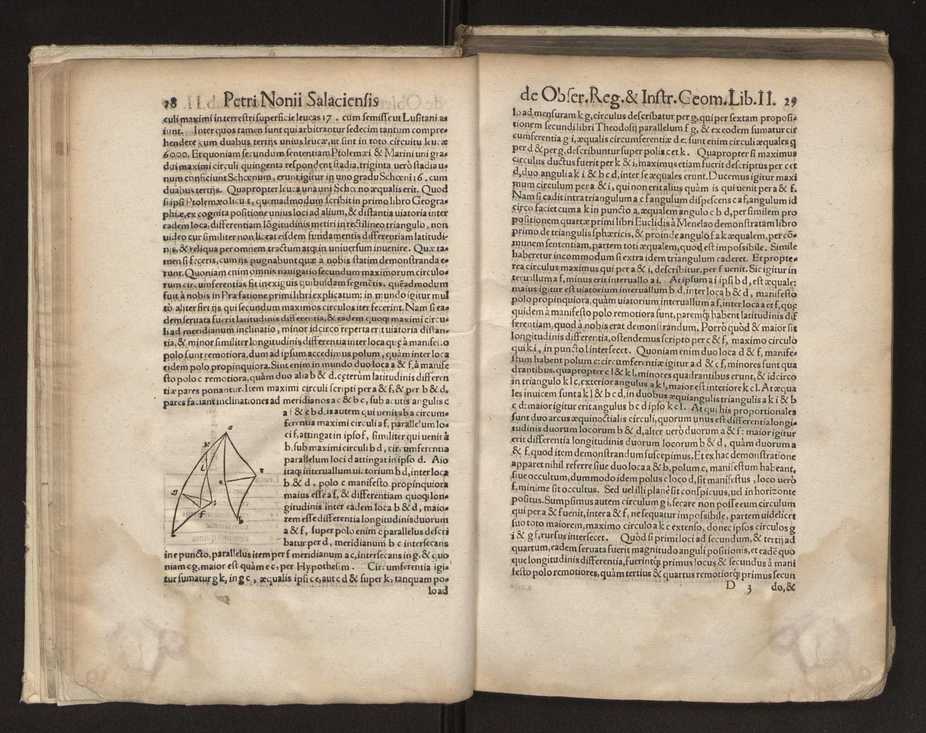 28 Petri Nonii Salaciensis
culi maximi in terrestri superficie leucas 17. cum semisse ut Lusitani as
iunt. Inter quos tamen sunt qui arbitrantur sedecim tantum compre-
hendere cum duabus tertijs unius leucæ, ut sint in toto circuitu leu. æ
6000. Et quoniam secundum sententiam Ptolemæi & Marini uni gra-
dui maximi circuli quingenta respondent stadia, triginta uero stadia u-
num conficiunt Schœnum, erunt igitur in uno gradu Schœni 16. cum
duabus tertijs. Quapropter leu. a una uni Schœno æqualis erit. Quod
si ipsi Ptolemæo licuit, quemadmodum scribit in primo libro Geogra-
phiæ, ex cognita positione unius loci ad alium, & distantia uiatoria inter
eadem loca, differentiam lōgitudinis metiri in rectilineo triangulo, non
uideo cur similiter non liceat eisdem fundamentis differentiam latitudi-
nis, & reliqua per omnem tractum atq; in uniuersum inuenire. Quæ ta-
men si feceris, cum ijs pugnabunt quæ à nobis statim demonstranda e-
runt. Quoniam enim omnis nauigatio secundum maximorum circulo-
rum circumferentias fit in exiguis quibusdam segmētis, quēadmodum
fuit à nobis in Præfatione primi libri explicatum: in mundo igitur mul
tò aliter fiet ijs qui secundum maximos circulos iter fecerint. Nam si ea-
dem seruata fuerit latitudinis differentia, & eadem quoq; maximi circu-
li ad meridianum inclinatio, minor id circo reperta erit uiatoria distan-
tia, & minor similiter longitudinis differentia inter loca quę à manifesto
polo sunt remotiora, dum ad ipsum accedimus polum, quàm inter loca
eidem polo propinquiora. Sint enim in mundo duo loca a & f, à manife
sto polo c remotiora, quàm duo alia b & d. cęterùm latitudinis differen
tiæ pares ponantur. Item maximi circuli scripti per a & f, & per b & d,
pares faciant inclinationes ad meridianos a c & b c, sub acutis angulis c
a f & c b d. is autem qui uenit ab a circum-
ferentia maximi circuli a f, parallelum lo-
ci f, attingat in ipso f, similiter qui uenit à
b. sub maximi circuli b d, circumferentia
parallelum loci d attingat in ipso d. Aio
itaq; interuallum uiatorium b d, inter loca
b & d, polo c manifesto propinquiora
maius esse a f, & differentiam quoq; lon-
gitudinis inter eadem loca b & d, maio-
rem esse differentia longitudinis duorum
a & f, super polo enim c parallelus descri
batur per d, meridianum b c intersecans
in e puncto, parallelus item per f meridianum a c, intersecans in g. & quo
niam c g, maior est quàm e c, per Hypothesim. Circumferentia igi-
tur sumatur g k, in g c, æqualis ipsi c e, aut c d & super k, tanquam po-
lo ad
de Obser. Reg. & Instr. Geom. Lib. II. 29
lo ad mensuram k g, circulus describatur per g, qui per sextam proposi-
tionem secundi libri Theodosij parallelum f g, & ex eodem sumatur cir
cumferentia g i, æqualis circumferentiæ d e: sunt enim circuli æquales q
per d & per g, describuntur super polis c et k. Quapropter si maximus
circulus ductus fuerit per k & i, maximus etiam fuerit descriptus per c et
d, duo anguli a k i & b c d, inter se æquales erunt. Ducemus igitur maxi
mum circulum per a & i, qui non erit alius quàm is qui uenit per a & f.
Nam si cadit intra triangulum a c f angulum dispescens c a f, angulum id
circo faciet cum a k in puncto a, æqualem angulo c b d, per similem pro
positionem quartæ primi libri Euclidis à Menelao demonstratam libro
primo de triangulis sphæricis, & proinde angulo f a k æqualem, per cō-
munem sententiam, partem toti æqualem, quod est impossibile. Simile
haberetur incommodum si extra idem triangulum caderet. Et propte-
rea circulus maximus qui per a & i, describitur, per f uenit. Sic igitur in
teruallum a f, minus erit interuallo a i. At ipsum a i ipsi b d, est æquale:
maius igitur est uiatorium interuallum b d, inter loca b & d, manifesto
polo propinquiora, quàm uiatorium interuallum a f, inter loca a et f, quę
quidem à manifesto polo remotiora sunt, paremq; habent latitudinis dif
ferentiam, quod à nobis erat demonstrandum. Porrò quòd & maior sit
longitudinis differentia, ostendemus scripto per c & f, maximo circulo
qui k i, in puncto l intersecet. Quoniam enim duo loca d & f, manife-
stum habent polum c: circumferentiæ igitur a d & c f, minores sunt qua
drantibus. quapropter c l & k l, minores quadrantibus erunt, & id circo
in triangulo k l c, exterior angulus a k l, maior est interiore k c l. At æqua
les inuicem sunt a k l & b c d, in duobus æquiangulis triangulis a k i & b
c d: maior igitur erit angulus b c d ipso k c l. At qui his proportionales
sunt duo arcus æquinoctialis circuli, quorum unus est differentia longi-
tudinis duorum locorum b & d, alter uerò duorum a & f: maior igitur
erit differentia longitudinis duorum locorum b & d, quàm duorum a
& f, quod item demonstrandum suscepimus. Et ex hac demonstratione
apparet nihil referre siue duo loca a & b, polum c, manifestum habeant,
siue occultum, dummodo idem polus c loco d, sit manifestus, loco uerò
f, minime sit occultus. Sed uel illi planè sit conspicuus, uel in horizonte
positus. Sumpsimus autem circulum g i, secare non posse eum circulum
qui per a & f uenit, inter a & f, ne sequatur impossibile, partem uidelicet
suo toto maiorem, maximo circulo a k c extenso, donec ipsos circulos g
i & g f, rursus intersecet. Quòd si primi loci ad secundum, & tertij ad
quartum, eadem seruata fuerit magnitudo anguli positionis, et eadē quo
que longitudinis differentia, fuerintq; primus locus & secundus à mani
festo polo remotiores, quàm tertius & quartus remotiorq; primus secun
D 3 do, &